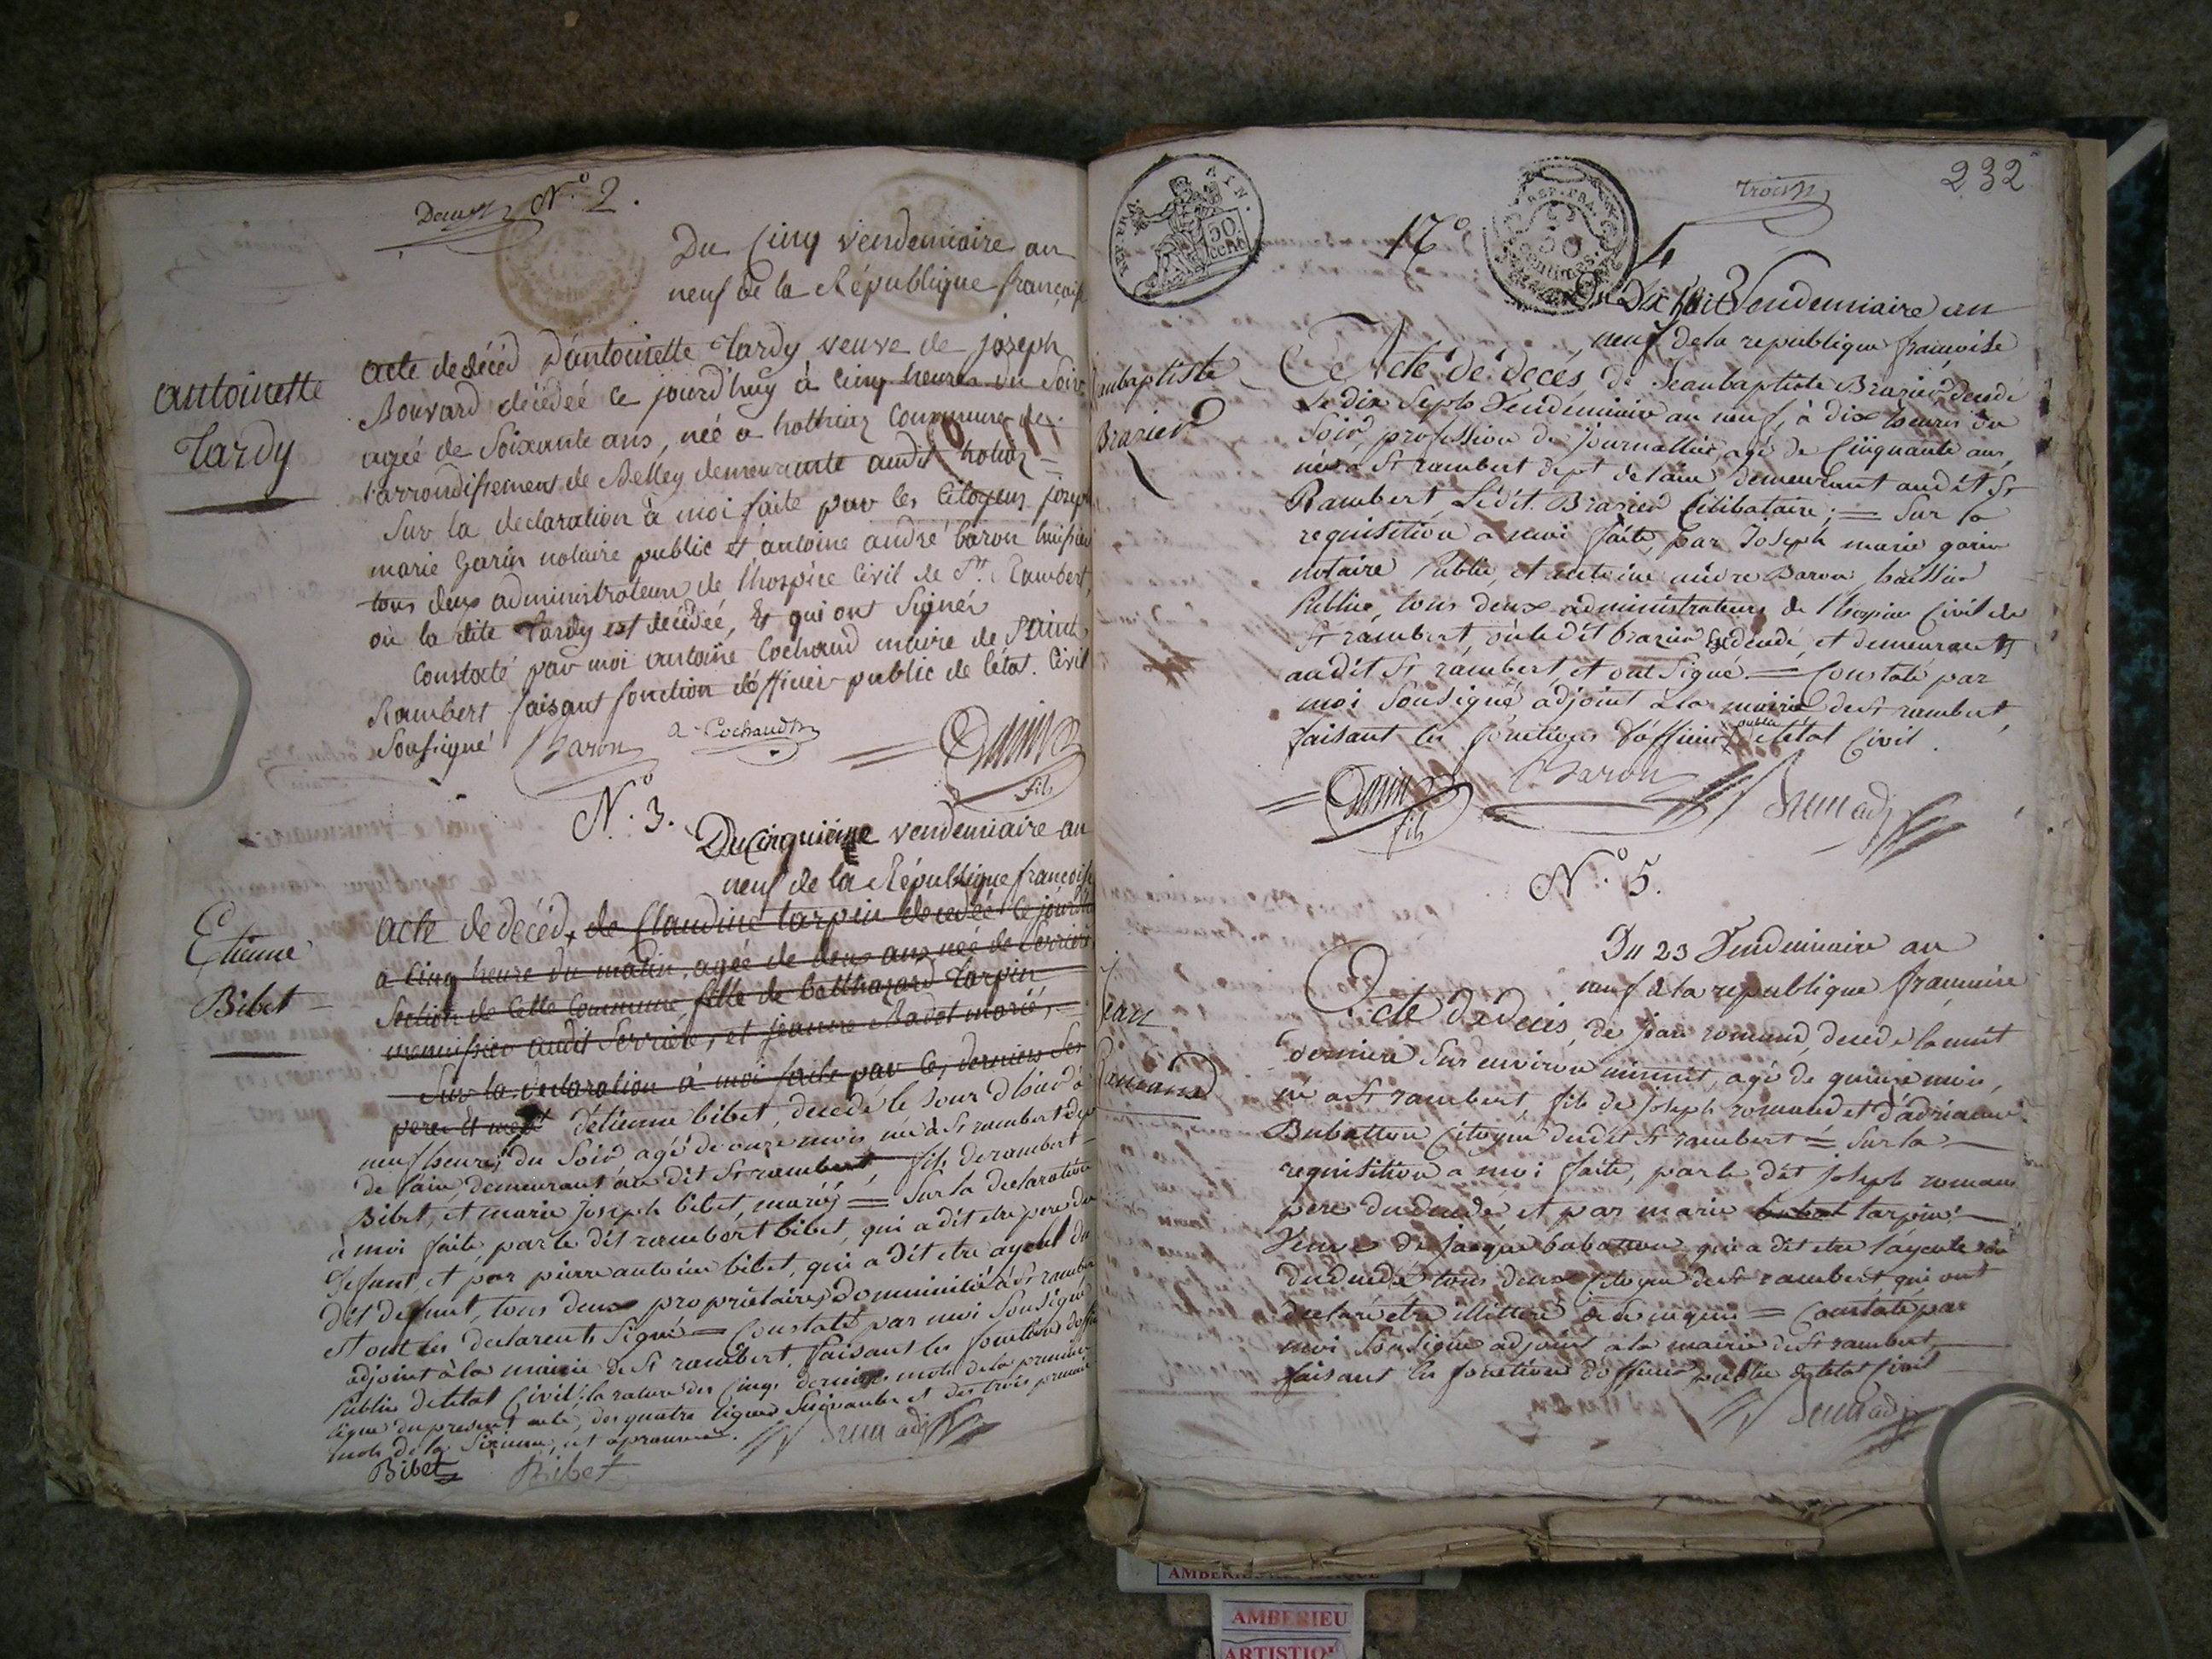 Deux N.o 2.
Du Cinq vendemiaire an
neuf de la République françoise
antoinette
Tardy
acte de décéd D'antoinette Tardy veuve de joseph
Bouvard décédéé ce jourd'huy à Cinq heures du Soir
ageé de Soixante ans, néé a hothiaz Commune de
l'arrondissement de Belley demeurante audit
Sur la declaration à moi faite par les Citoyens joseph
marie Garin notaire public et antoine andré baron huissier
tous deux administrateurs de l'hospice Civil de St. Rambert,
ou la dite Tardy est décédéé, Et qui ont Signés
Constaté par moi antoine Cochaud maire de Saint
Rambert faisant fonction d'officier public de l'état Civil
Soussigné Baron a Cochaud Garin
fils
N.o 3.
Du Cinquieme vendemiaire an
neuf de la République francoise
Etienne
Bibet
acte de décéd, de Claudine tarpin decedéé ce jourd'hui
a Cinq heure du matin, ageé de deux ans, néé de Serriere
Section de Cette Commune, fille de Balthazard tarpin
menuisier audit Serriere, et jeanne Badot marié,
Sur la declaration à moi faite par les derniers Ses
pere et mere d'étienne bibet, decedé le jour d'hier à
neuf heures du Soir agé de onze mois, né à St rambert dept
de l'ain, demeurant au dit St rambert, fils de rambert
Bibet, et marie joseph bibet, mariés = Sur la declaration
à moi faite, par le dit rambert bibet, qui a dit etre pere du
defunt, et par pierre antoine bibet, qui a dit etre ayeul du
dit defunt, tous deux propriétaires Dominiciliés à St rambert
et ont les declarents Signé = Constaté par moi Sousigné
adjoint à la mairie de St rambert, faisant les fonctions d'officier
Public detetat Civil; la rature des Cinqs derniers mots de la premiere
ligne du present acte, des quatre lignes Suivantes et des trois premiers
mots de la Sixieme, est aprouvée.
Bibet Bibet
232
Trois
REP. FRA.
50
cent
REP. FRA.
50
centimes
N.o 4
Du Dix huit Vendemiaire an
neuf de la republique françoise
Jeanbaptiste
Brasier
Acte de decés, de Jeanbaptiste Brasier, decedé
Le dix Sept Vendémiaire an neuf, à dix heures du
Soir, profession de journallier, agé de Cinquante ans,
né à St rambert dept de l'ain demeurant audit St
Rambert, Ledit Brasier Célibataire; = Sur la
requisition à moi faite, par Joseph marie garin
notaire Public, et antoine andre Baron, huissier
Publics, tous deux administrateurs de l'hospice Civil de
St rambert, ou ledit brasier est decedé, et demeurants
audit St rambert, et ont Signé = Constaté par
moi Sousigné adjoint à la mairie de St rambert,
faisant les fonctions d'officier public detetat Civil.
Garin
fils
Baron
N.o 5.
Du 23 Vendemiaire an
neuf de la republique francoise
Jean
Romand
Acte de decés, de jean romand, decedé la nuit
derniere Sur environ minuit, agé de quinze mois,
né a St rambert, fils de joseph romand et d'adrianne
Babatton Citoyens dudit St rambert = Sur la
requisition à moi faite, par le dit joseph romand
pere du decedé et par marie tarpin
Veuve de jacque babatton, qui a dit etre l'ayeule
du decedé, tous deux Citoyens de St rambert qui ont
declaré etre illitteré de ce enquis = Constaté par
moi Sousigné adjoint à la mairie de St rambert,
faisant les fonctions d'officier public detetat Civil
AMBERIEU
ARTISTIQUE